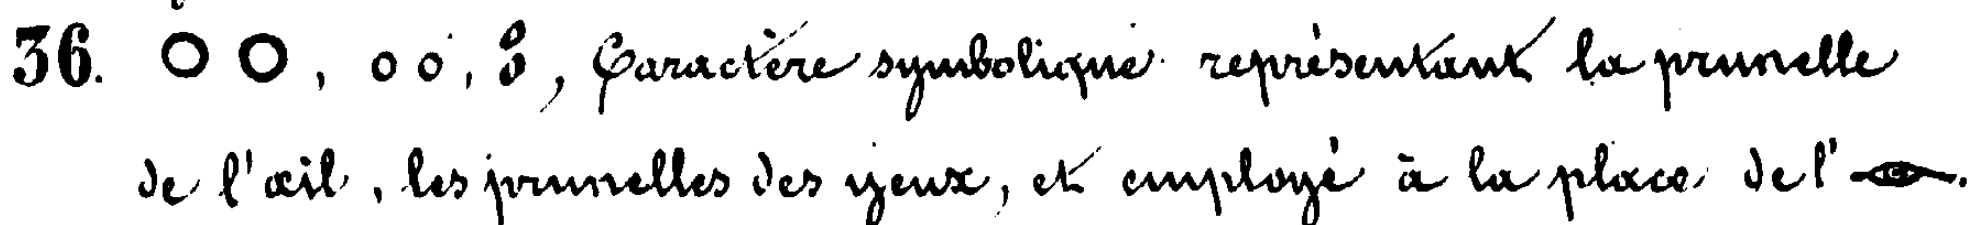 36. O O, o o, 8, Caractère symbolique représentant la prunelle
de l'œil, les prunelles des yeux, et employé à la place de l' 𓁹.